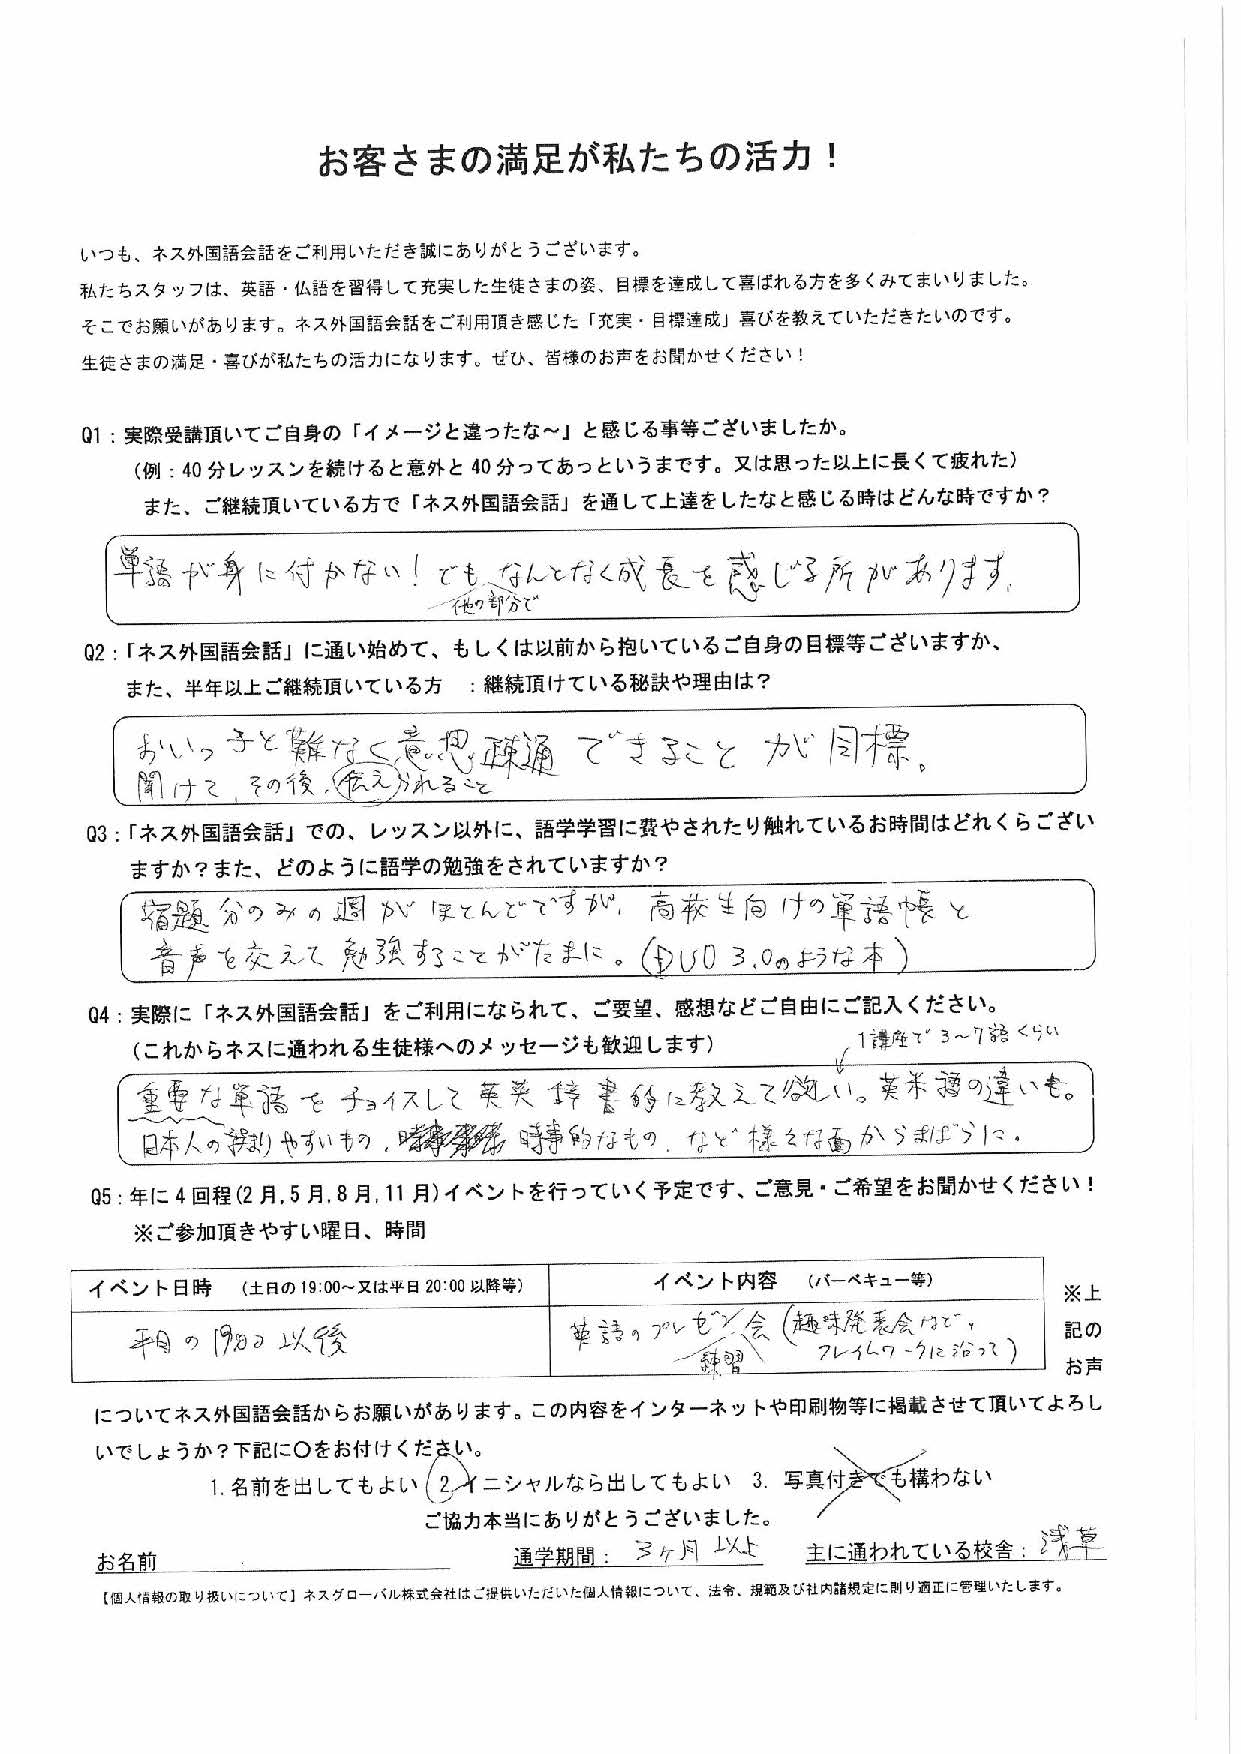 お客さまの満足が私たちの活力！
いつも、ネス外国語会話をご利用いただき誠にありがとうございます。
私たちスタッフは、英語・仏語を習得して充実した生徒さまの姿、目標を達成して喜ばれる方を多くみてまいりました。
そこでお願いがあります。ネス外国語会話をご利用頂き感じた「充実・目標達成」喜びを教えていただきたいのです。
生徒さまの満足・喜びが私たちの活力になります。ぜひ、皆様のお声をお聞かせください！
Q1：実際受講頂いてご自身の「イメージと違ったな～」と感じる事等ございましたか。
（例：40分レッスンを続けると意外と40分ってあっというまです。又は思った以上に長くて疲れた）
また、ご継続頂いている方で「ネス外国語会話」を通して上達をしたなと感じる時はどんな時ですか？
単語が身に付かない！でも、なんとなく成長を感じる所があります。
他の部分で
Q2：「ネス外国語会話」に通い始めて、もしくは以前から抱いているご自身の目標等ございますか、
また、半年以上ご継続頂いている方　：継続頂けている秘訣や理由は？
おいっ子と難なく意思疎通できることが目標。
聞けて、その後、伝えられること
Q3：「ネス外国語会話」での、レッスン以外に、語学学習に費やされたり触れているお時間はどれくらござい
ますか？また、どのように語学の勉強をされていますか？
宿題分のみの週がほとんどですが、高校生向けの単語帳と
音声を交えて勉強することがたまに。（DUO 3.0のような本）
Q4：実際に「ネス外国語会話」をご利用になられて、ご要望、感想などご自由にご記入ください。
（これからネスに通われる生徒様へのメッセージも歓迎します）
1講座で3～7語くらい
重要な単語をチョイスして英英辞書的に教えて欲しい。英米語の違いも。
日本人の誤りやすいもの、時事的なもの、など様々な面からまばらに。
Q5：年に4回程(2月,5月,8月,11月)イベントを行っていく予定です、ご意見・ご希望をお聞かせください！
※ご参加頂きやすい曜日、時間
イベント日時　（土日の19:00～又は平日20:00以降等）
イベント内容　（バーベキュー等）
平日の19:00以後
英語のプレゼン会（趣味発表会などで、
練習
フレイムワークに沿って）
※上
記の
お声
についてネス外国語会話からお願いがあります。この内容をインターネットや印刷物等に掲載させて頂いてよろし
いでしょうか？下記に〇をお付けください。
1.名前を出してもよい　2.イニシャルなら出してもよい　3.写真付きでも構わない
ご協力本当にありがとうございました。
お名前　通学期間：3ヶ月以上　主に通われている校舎：浅草
【個人情報の取り扱いについて】ネスグローバル株式会社はご提供いただいた個人情報について、法令、規範及び社内諸規定に則り適正に管理いたします。